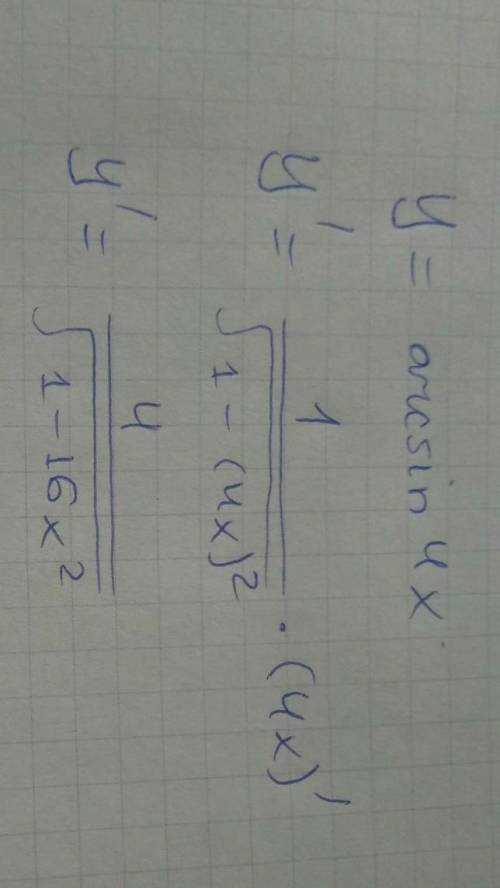 y = arcsin 4x
y' = 1/√(1 - (4x)²) · (4x)'
y' = 4/√(1 - 16x²)